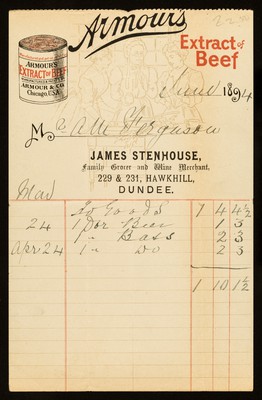 Armour's
Extract of
Beef
ARMOUR'S
EXTRACT OF BEEF
ARMOUR & CO
Chicago, U.S.A.
June 1894
Mr Ferguson
JAMES STENHOUSE,
Family Grocer and Wine Merchant,
229 & 231, HAWKHILL,
DUNDEE.
To Goods 7 4 4½
24 1 Doz Beer 1 3
1 " Bass 2 3
Apr 24 1 " Do 2 3
1 10 1½